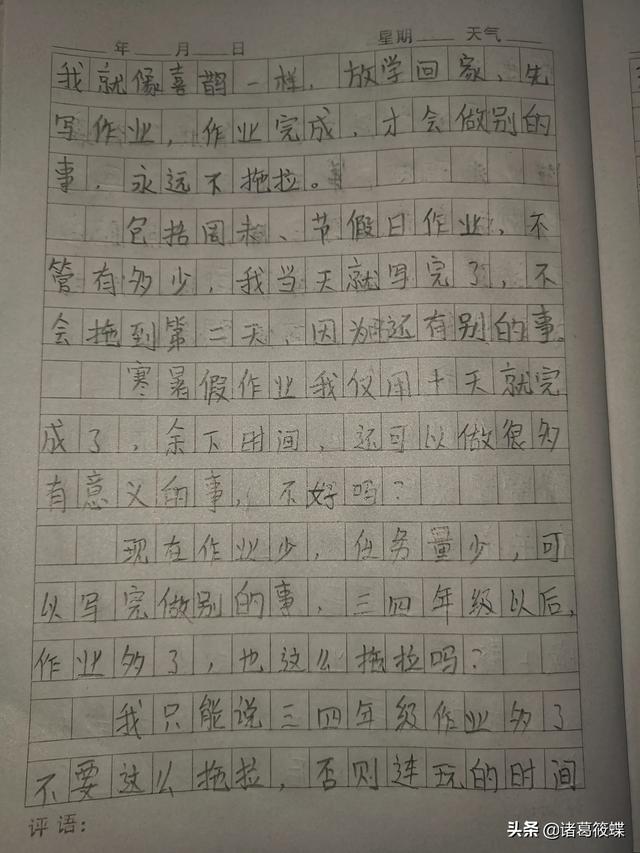 年 月 日 星期 天气
我就像喜鹊一样，放学回家，先
写作业，作业完成，才会做别的
事，永远不拖拉。
包括周末、节假日作业，不
管有多少，我当天就写完了，不
会拖到第二天，因为还有别的事。
寒暑假作业我仅用十天就完
成了，余下时间，还可以做很多
有意义的事，不好吗？
现在作业少，任务量少，可
以写完做别的事，三四年级以后，
作业多了，也这么拖拉吗？
我只能说三四年级作业多了
不要这么拖拉，否则连玩的时间
评语：
头条 @诸葛筱蝶